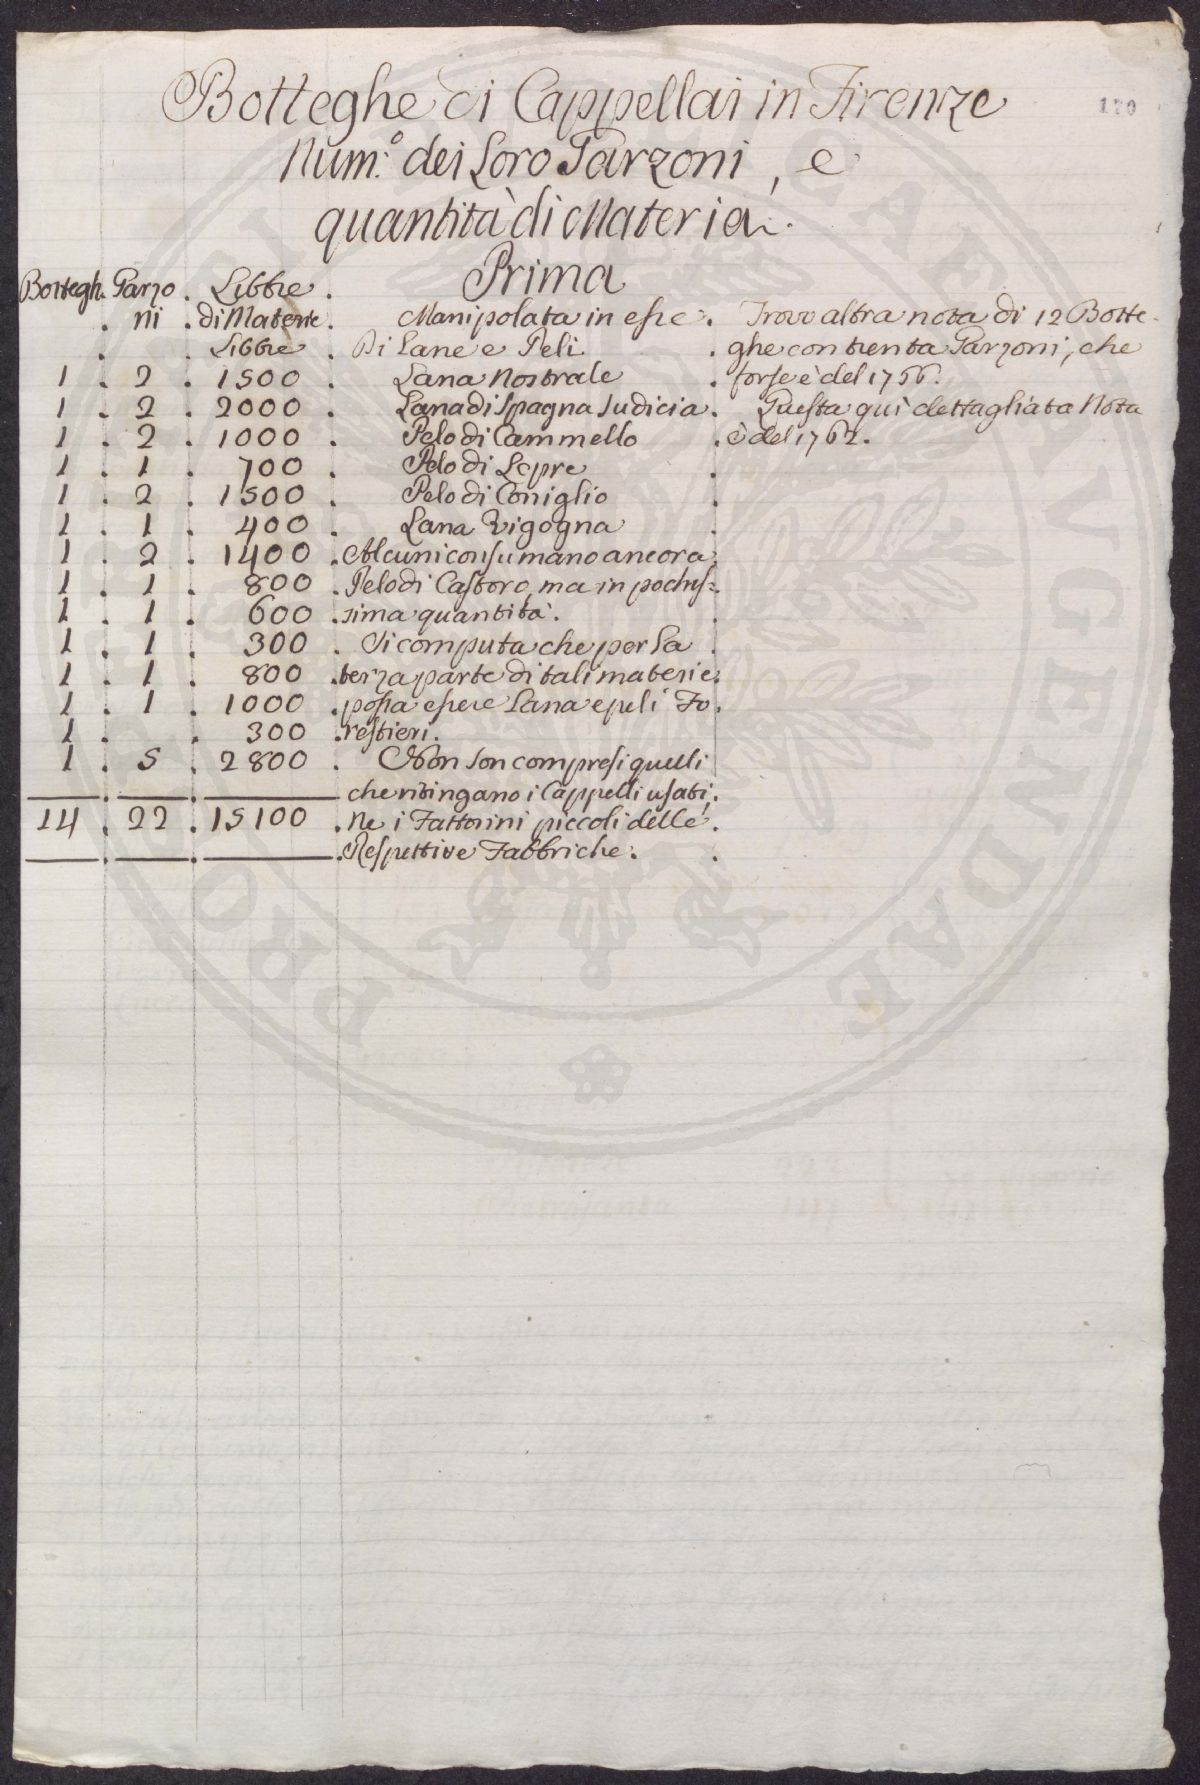 Botteghe di Cappellai in Firenze
Num.º dei Loro Garzoni, e
quantità di Materia.
Prima
170
Bottegh. Garzo. Libbre.
. ni . di Materie. Manipolata in esse. Trovo altra nota di 12 Botte-
. . Libbre . Di Lane e Peli . ghe con trenta Garzoni, che
1 . 2 . 1500 . Lana Nostrale . forse è del 1766.
1 . 2 . 2000 . Lana di Spagna Sudicia. Questa quì dettagliata Nota
1 . 2 . 1000 . Pelo di Cammello . è del 1762.
1 . 1 . 700 . Pelo di Lepre .
1 . 2 . 1500 . Pelo di Coniglio .
1 . 1 . 400 . Lana Vigogna .
1 . 2 . 1400 . Alcuni consumano ancora.
1 . 1 . 800 . Pelo di Castoro, ma in pochis:
1 . 1 . 600 . sima quantità. .
1 . 1 . 300 . Si computa che per la .
1 . 1 . 800 . terza parte di tali materie.
1 . 1 . 1000 . possa essere Lana e peli Fo.
1 . . 300 . restieri.
1 . 5 . 2800 . Non son compresi quelli
che ritingano i Cappelli usati.
14 . 22 . 15100 . Ne i Fattorini piccoli delle.
Respettive Fabbriche. .
PRO
DEI
CAE
AVGENDAE